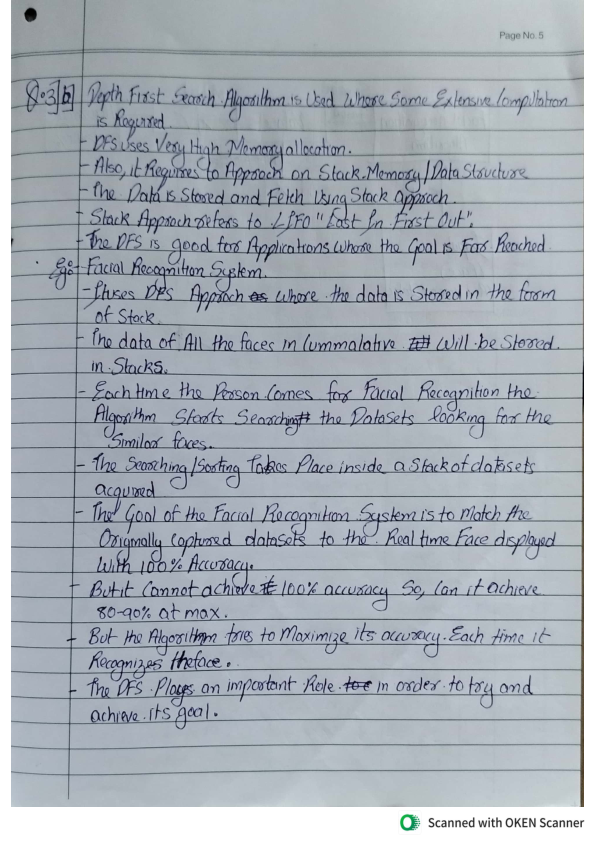 Page No. 5
Q.3] b] Depth First Search Algorithm is Used Where Some Extensive Compultation
is Required.
- DFS uses Very High Memory allocation.
- Also, it Requires to Approach on Stack Memory / Data Structure
- The Data is Stored and Fetch Using Stack approach.
- Stack Approach refers to LIFO "Last In First Out".
- The DFS is good for Applications where the Goal is Far Reached
Eg:- Facial Recognition System.
- It uses DFS Approach where the data is Stored in the form
of Stack.
- The data of All the faces in Cummalative Will be Stored.
in Stacks.
- Each time the Person Comes for Facial Recognition the
Algorithm Starts Searching the Datasets looking for the
Similar faces.
- The Searching/Sorting Takes Place inside a Stack of datasets
acquired
- The Goal of the Facial Recognition System is to Match the
Originally Captured datasets to the Real time Face displayed
With 100% Accuracy.
- But it Cannot achieve 100% accuracy So, Can it achieve
80-90% at max.
- But the Algorithm tries to Maximize its accuracy. Each time it
Recognizes the face.
- The DFS Plays an important Role in order to try and
achieve its goal.
Scanned with OKEN Scanner